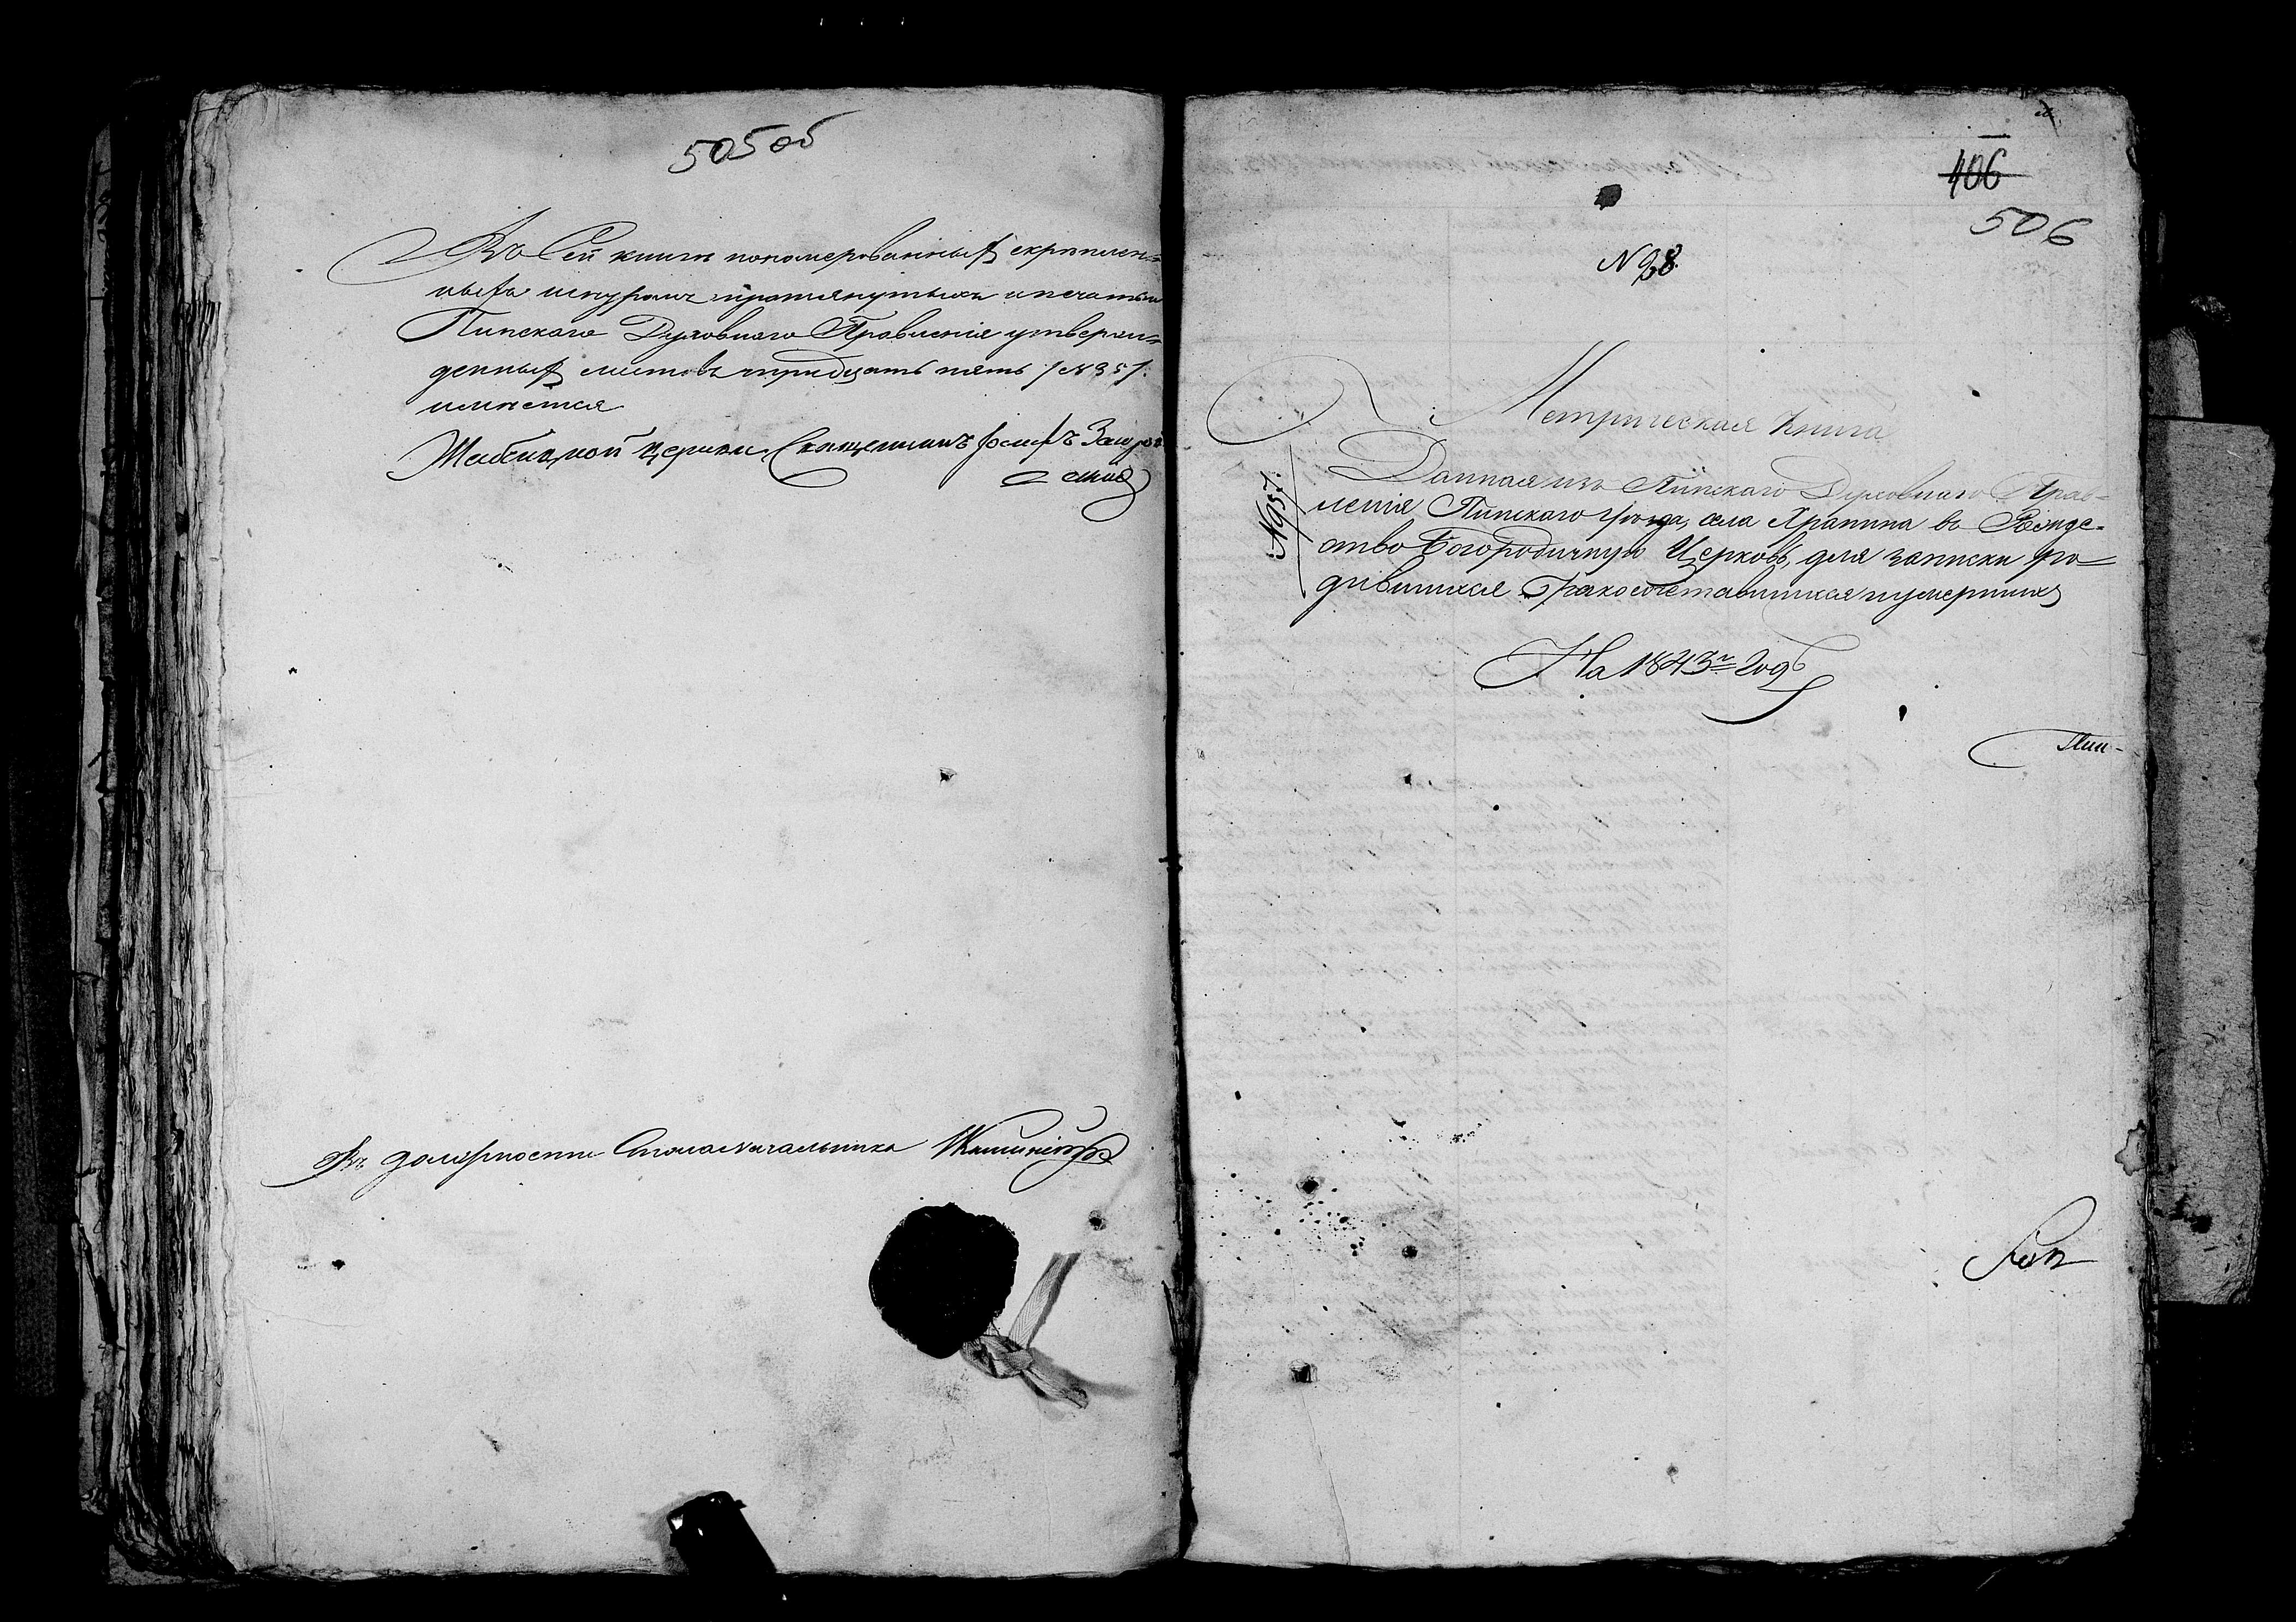 505 об
Въ Сей книги пономерованныхъ скрѣплен-
ныхъ шнуромъ протянутыхъ и печатью
Пинскаго Духовнаго Правленія утверж-
денныхъ листовъ тридцать пять /№35/.
имѣется
церкви Священникъ Іосифъ
Въ должности Столоначальника
406
506
№ 98.
Метрическая Книга
Данная изъ Пинскаго Духовнаго Прав-
ленія Пинскаго уѣзда, села Храпина въ Рожде-
ство Богородичную Церковь, для записки ро-
дившихся бракосочетавшихся и умершихъ
На 1843й годъ
№957.
Пин-